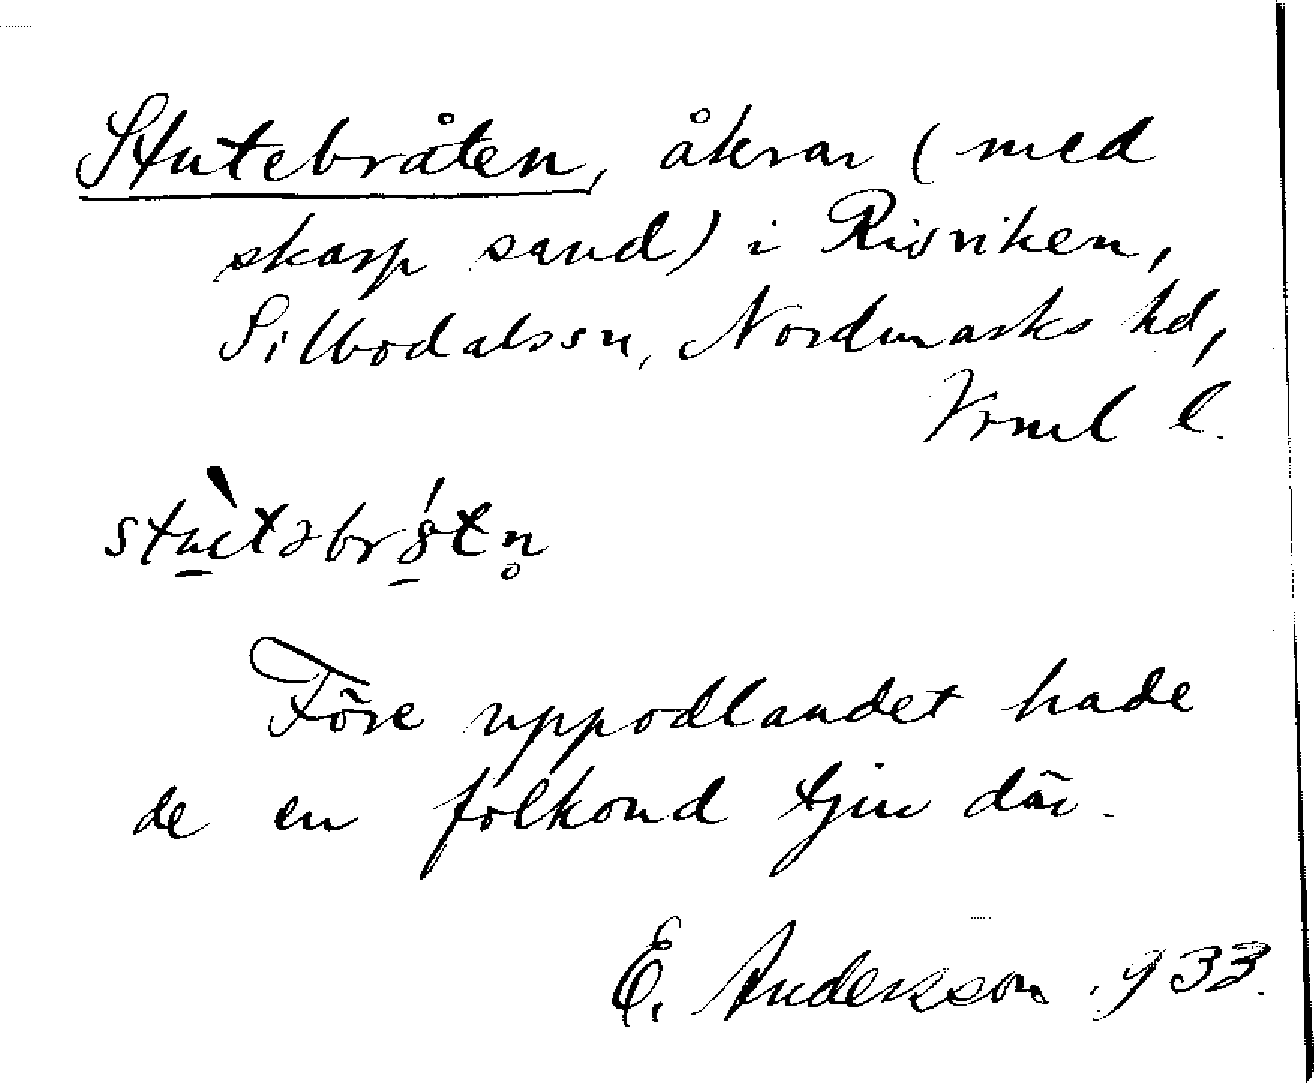 Stutebråten, åkrar (med
skarp sand) i Risviken,
Silbodalssn, Nordmarks hd,
Vrml l.
stùtəbrǻtn̥
Före uppodlandet hade
de en folkond tjur där.
E. Andersson 1933.